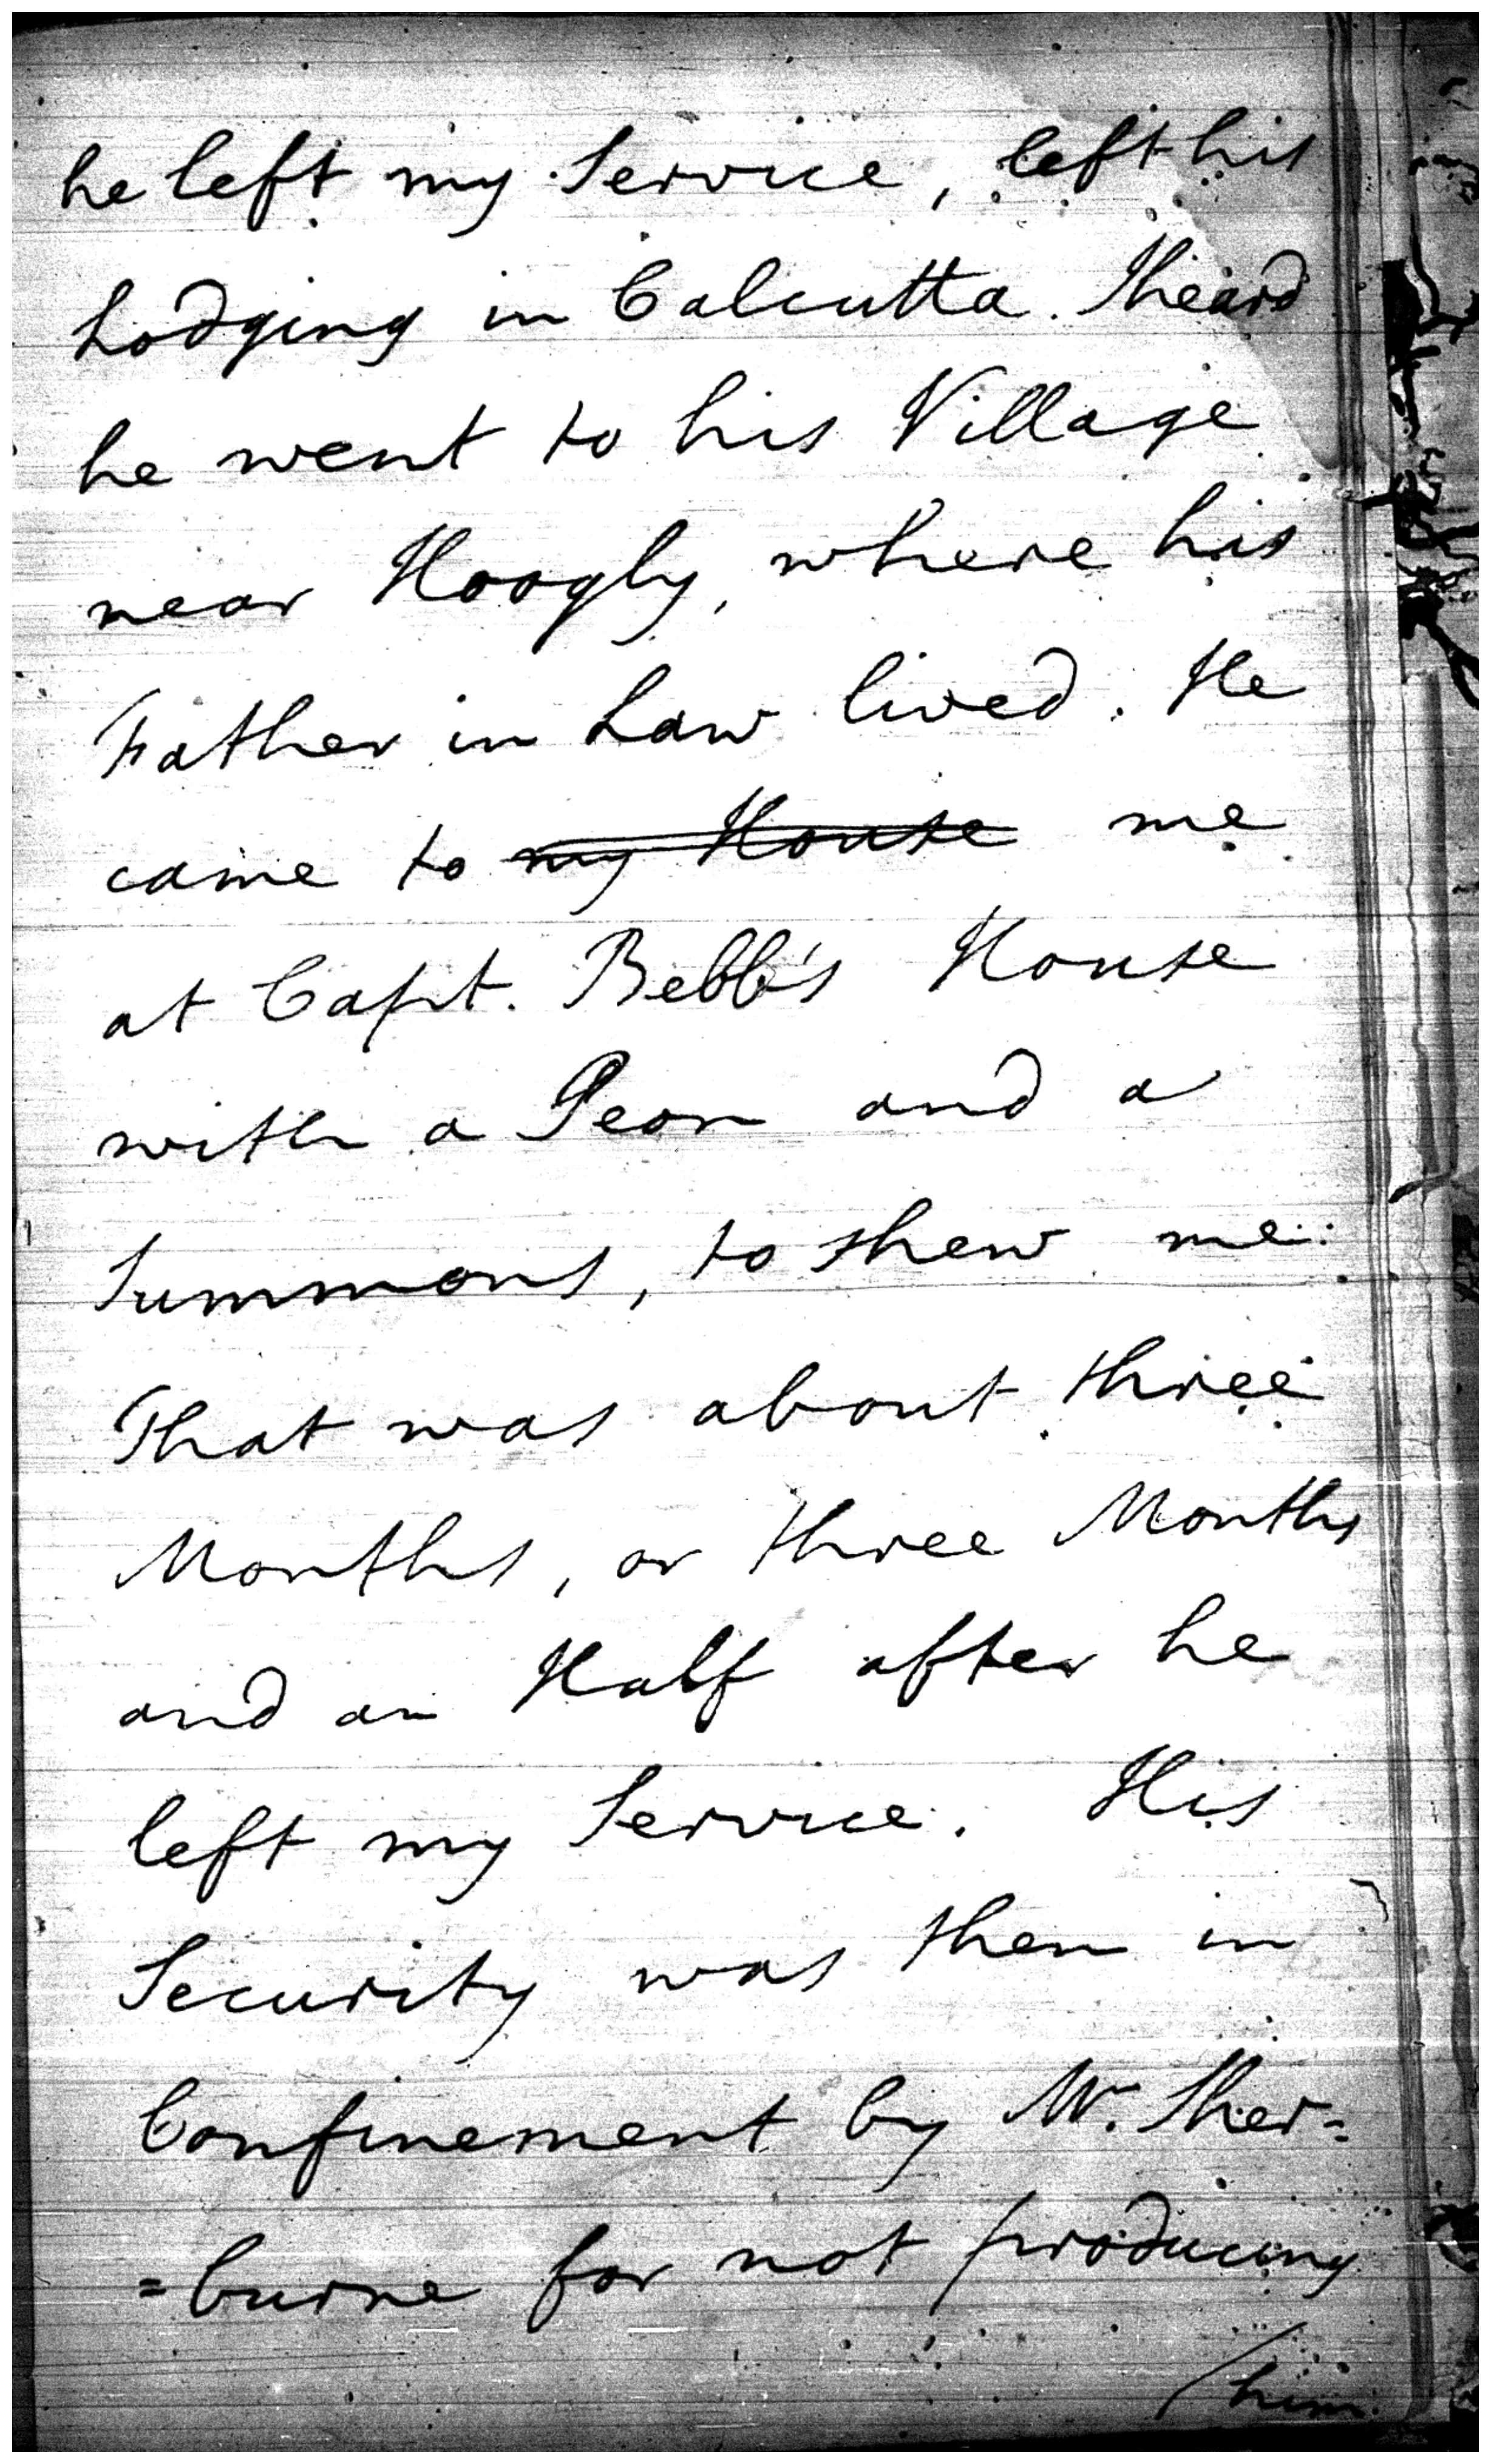 he left my Service, left his
Lodging in Calcutta. I heard
he went to his Village
near Hoogly, where his
Father in Law lived. He
came to my House me
at Capt. Bebb's House
with a Peon and a
Summons, to shew me.
That was about three
Months, or three Months
and an Half after he
left my Service. His
Security was then in
Confinement by Mr. Sher=
=burne for not producing
/him.